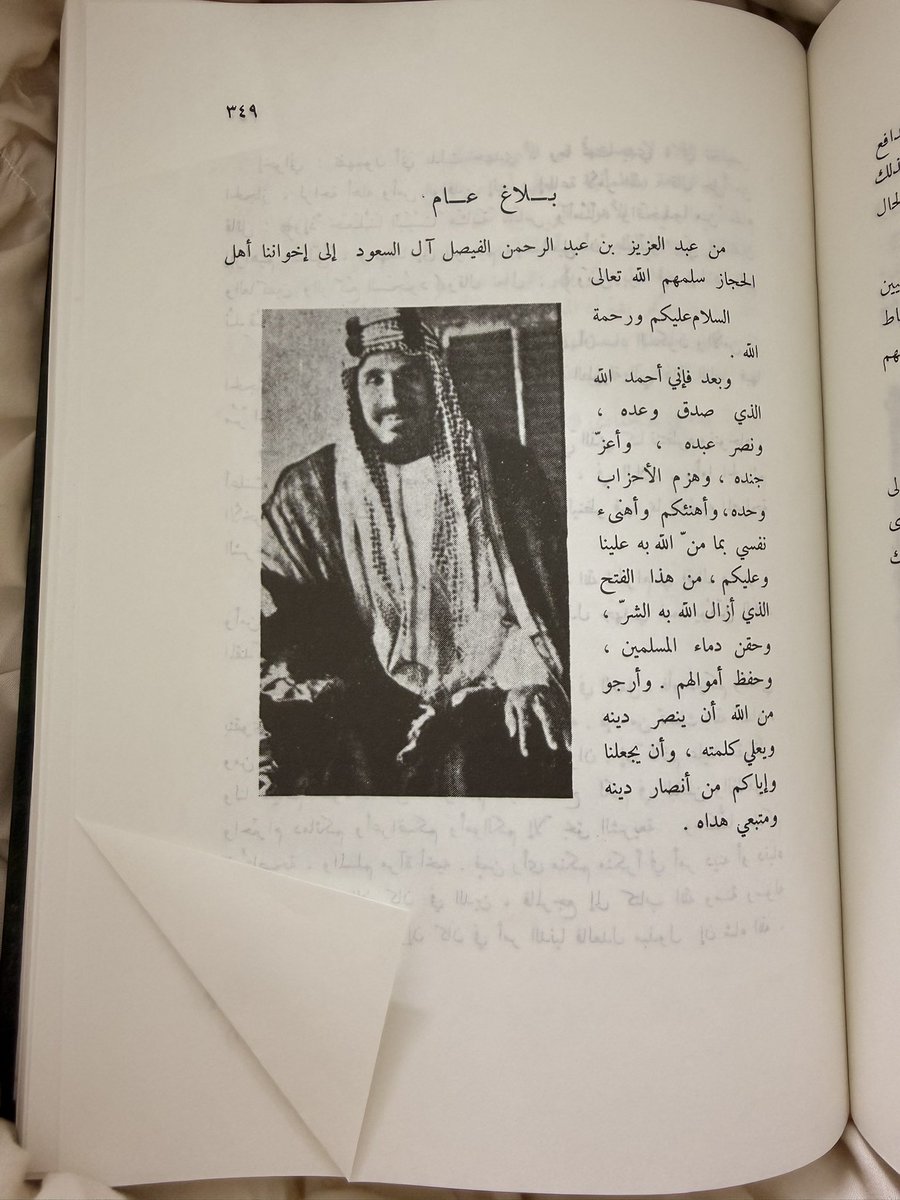 ٣٤٩
بـــلاغ عـــام
من عبد العزيز بن عبد الرحمن الفيصل آل السعود إلى إخواننا أهل
الحجاز سلمهم الله تعالى
السلام عليكم ورحمة
الله .
وبعد فإني أحمد الله
الذي صدق وعده ،
ونصر عبده ، وأعزّ
جنده ، وهزم الأحزاب
وحده، وأهنئكم وأهنىء
نفسي بما منّ الله به علينا
وعليكم ، من هذا الفتح
الذي أزال الله به الشرّ ،
وحقن دماء المسلمين ،
وحفظ أموالهم . وأرجو
من الله أن ينصر دينه
ويعلي كلمته ، وأن يجعلنا
وإياكم من أنصار دينه
ومتبعي هداه .